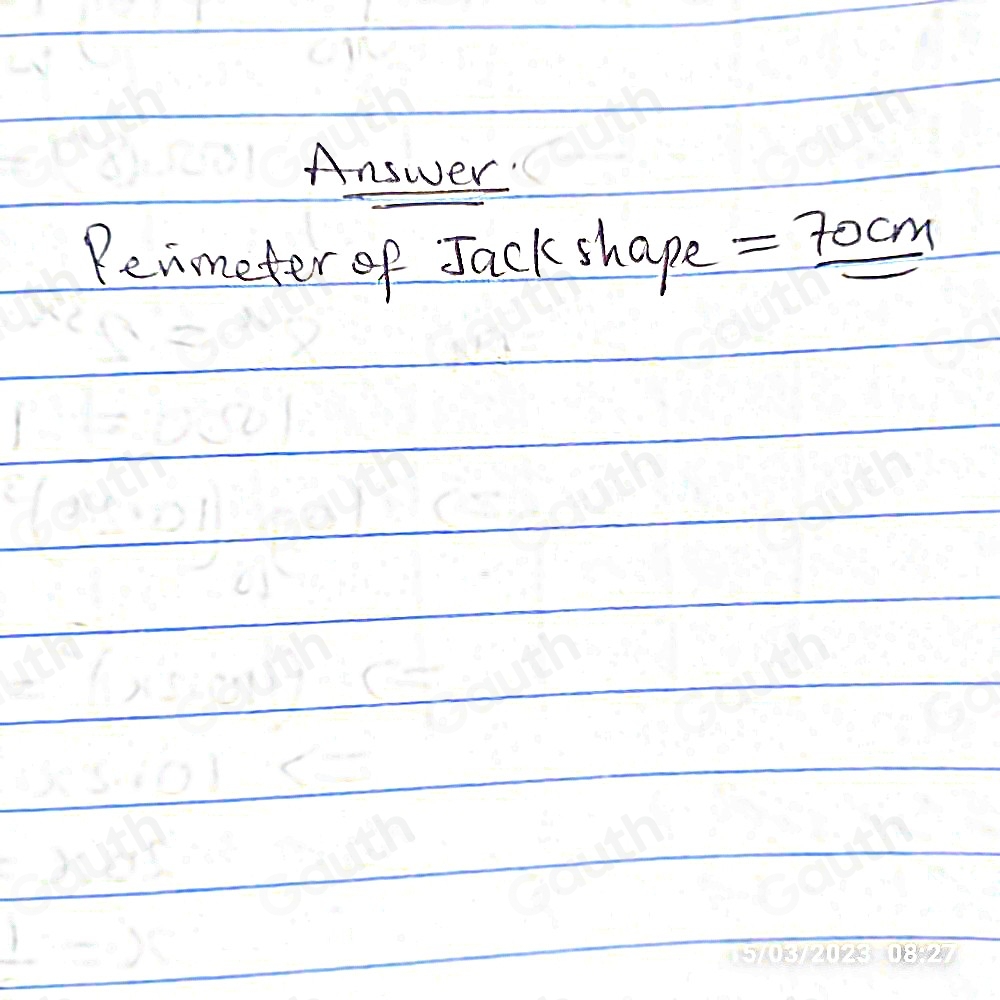 Answer.
Perimeter of Jack shape = 70cm
15/03/2023 08:27